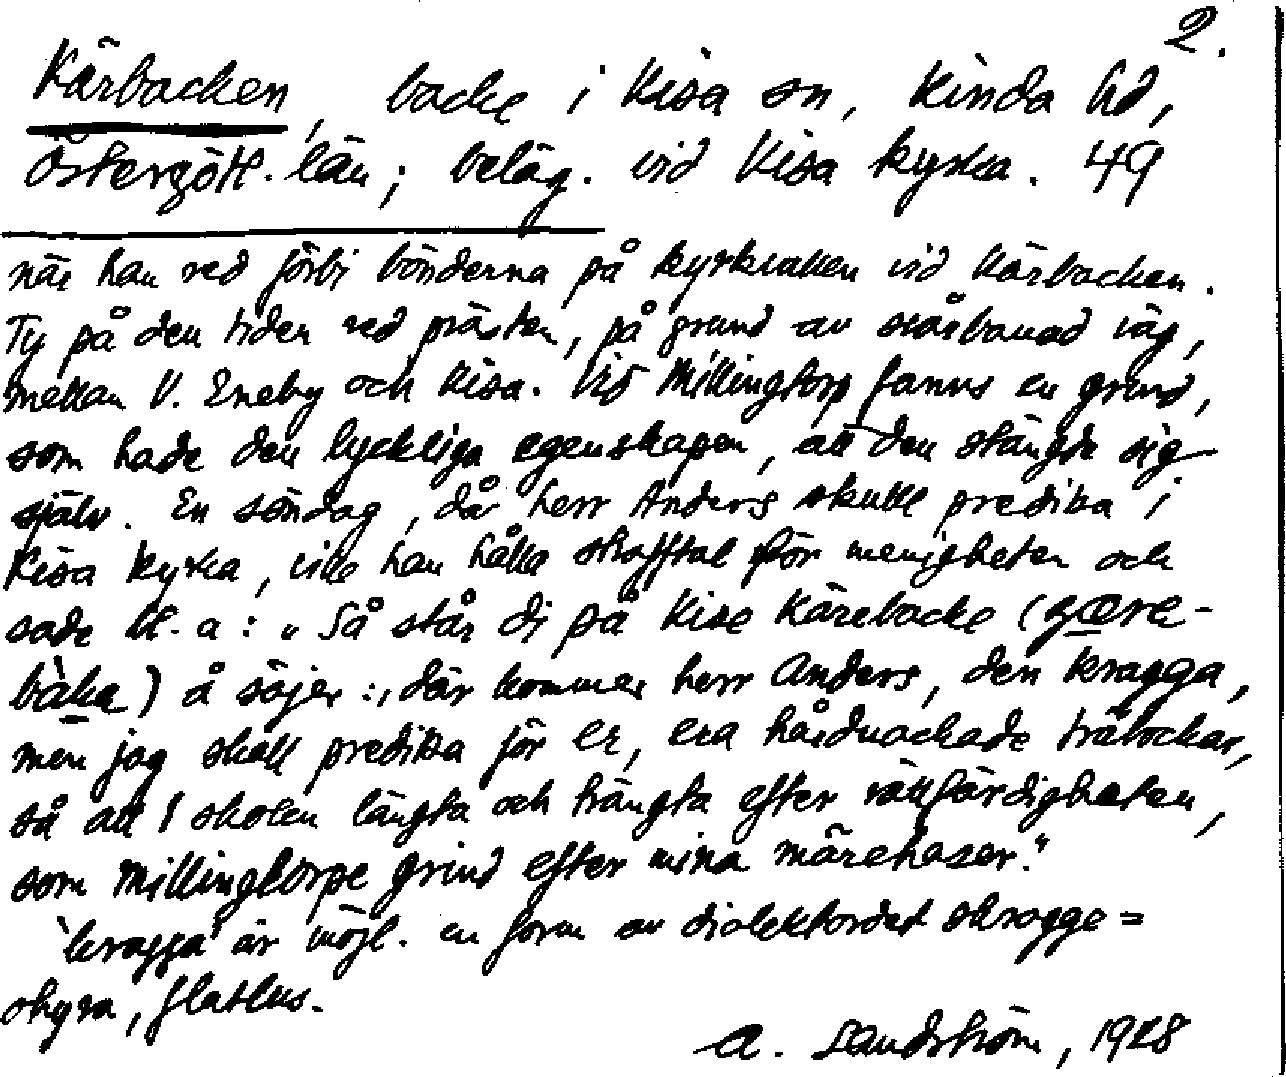 2.
Kärbacken, backe i Kisa sn, Kinda hd,
Östergötl. län; beläg. vid Kisa kyrka. 49
när han red förbi bönderna på kyrkvallen vid Kärbacken.
Ty på den tiden red prästen, på grund av svårbanad väg,
mellan V. Eneby och Kisa. Vid Millingtorp fanns en grind,
som hade den lyckliga egenskapen, att den stängde sig
själv. En söndag, då herr Anders skulle predika i
Kisa kyrka, ville han hålla strafftal för menigheten och
sade bl. a: „Så står di på Kise Kärebacke (
) å säjer :, där kommer herr Anders, den kragga,
men jag skall predika för er, era hårdnackade träbockar,
så att I skolen längta och trängta efter rättfärdigheten,
som Millingtorpe grind efter mina märehaser."
'kragga' är möjl. en form av dialektordet skragge =
ohyra, flatlus.
A. Sandström, 1928